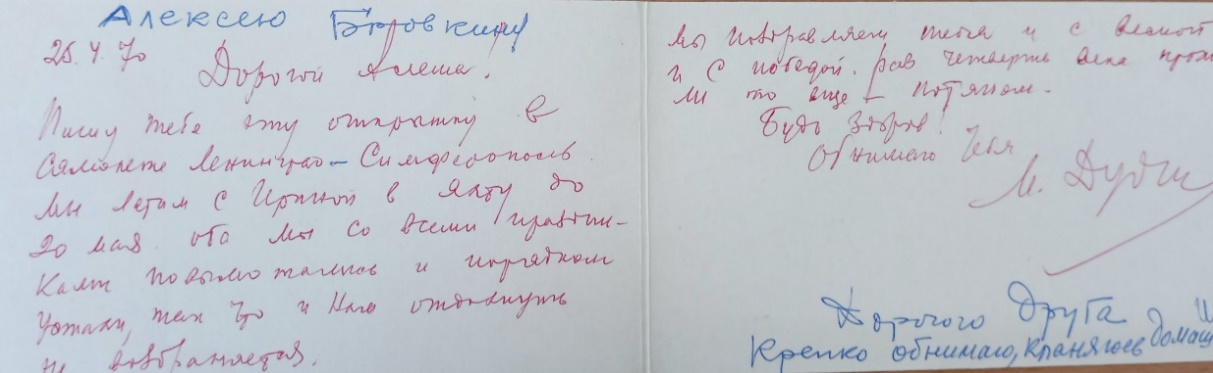 Алексею Боровкину
25.4.70
Дорогой Алеша!
Пишу тебе эту открытку в
самолете Ленинград – Симферополь.
Мы летим с Ириной в Ялту до
20 мая. Оба мы со всеми праздни-
ками повымотались и порядком
устали, так что и нам отдохнуть
не возбраняется.
Мы поздравляем тебя и с весной
и с победой. Раз четверть века прож
ли то еще – потянем.
Будь здоров!
Обнимаю тебя
М. Дудин
Дорогого Друга
Крепко обнимаю,